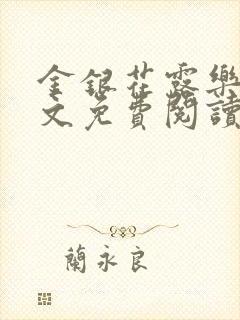 金銀花露樂
文免費閱讀
蘭永良